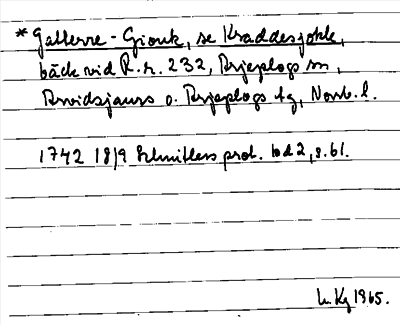 *Gallerre-Giouk, se Kraddesjokk,
bäck vid R.r. 232, Arjeplogs sn,
Arvidsjaurs o. Arjeplogs tg, Norrb. l.
1742 18/9 Schnitlers prot. bd 2, s. 61.
Kg 1965.